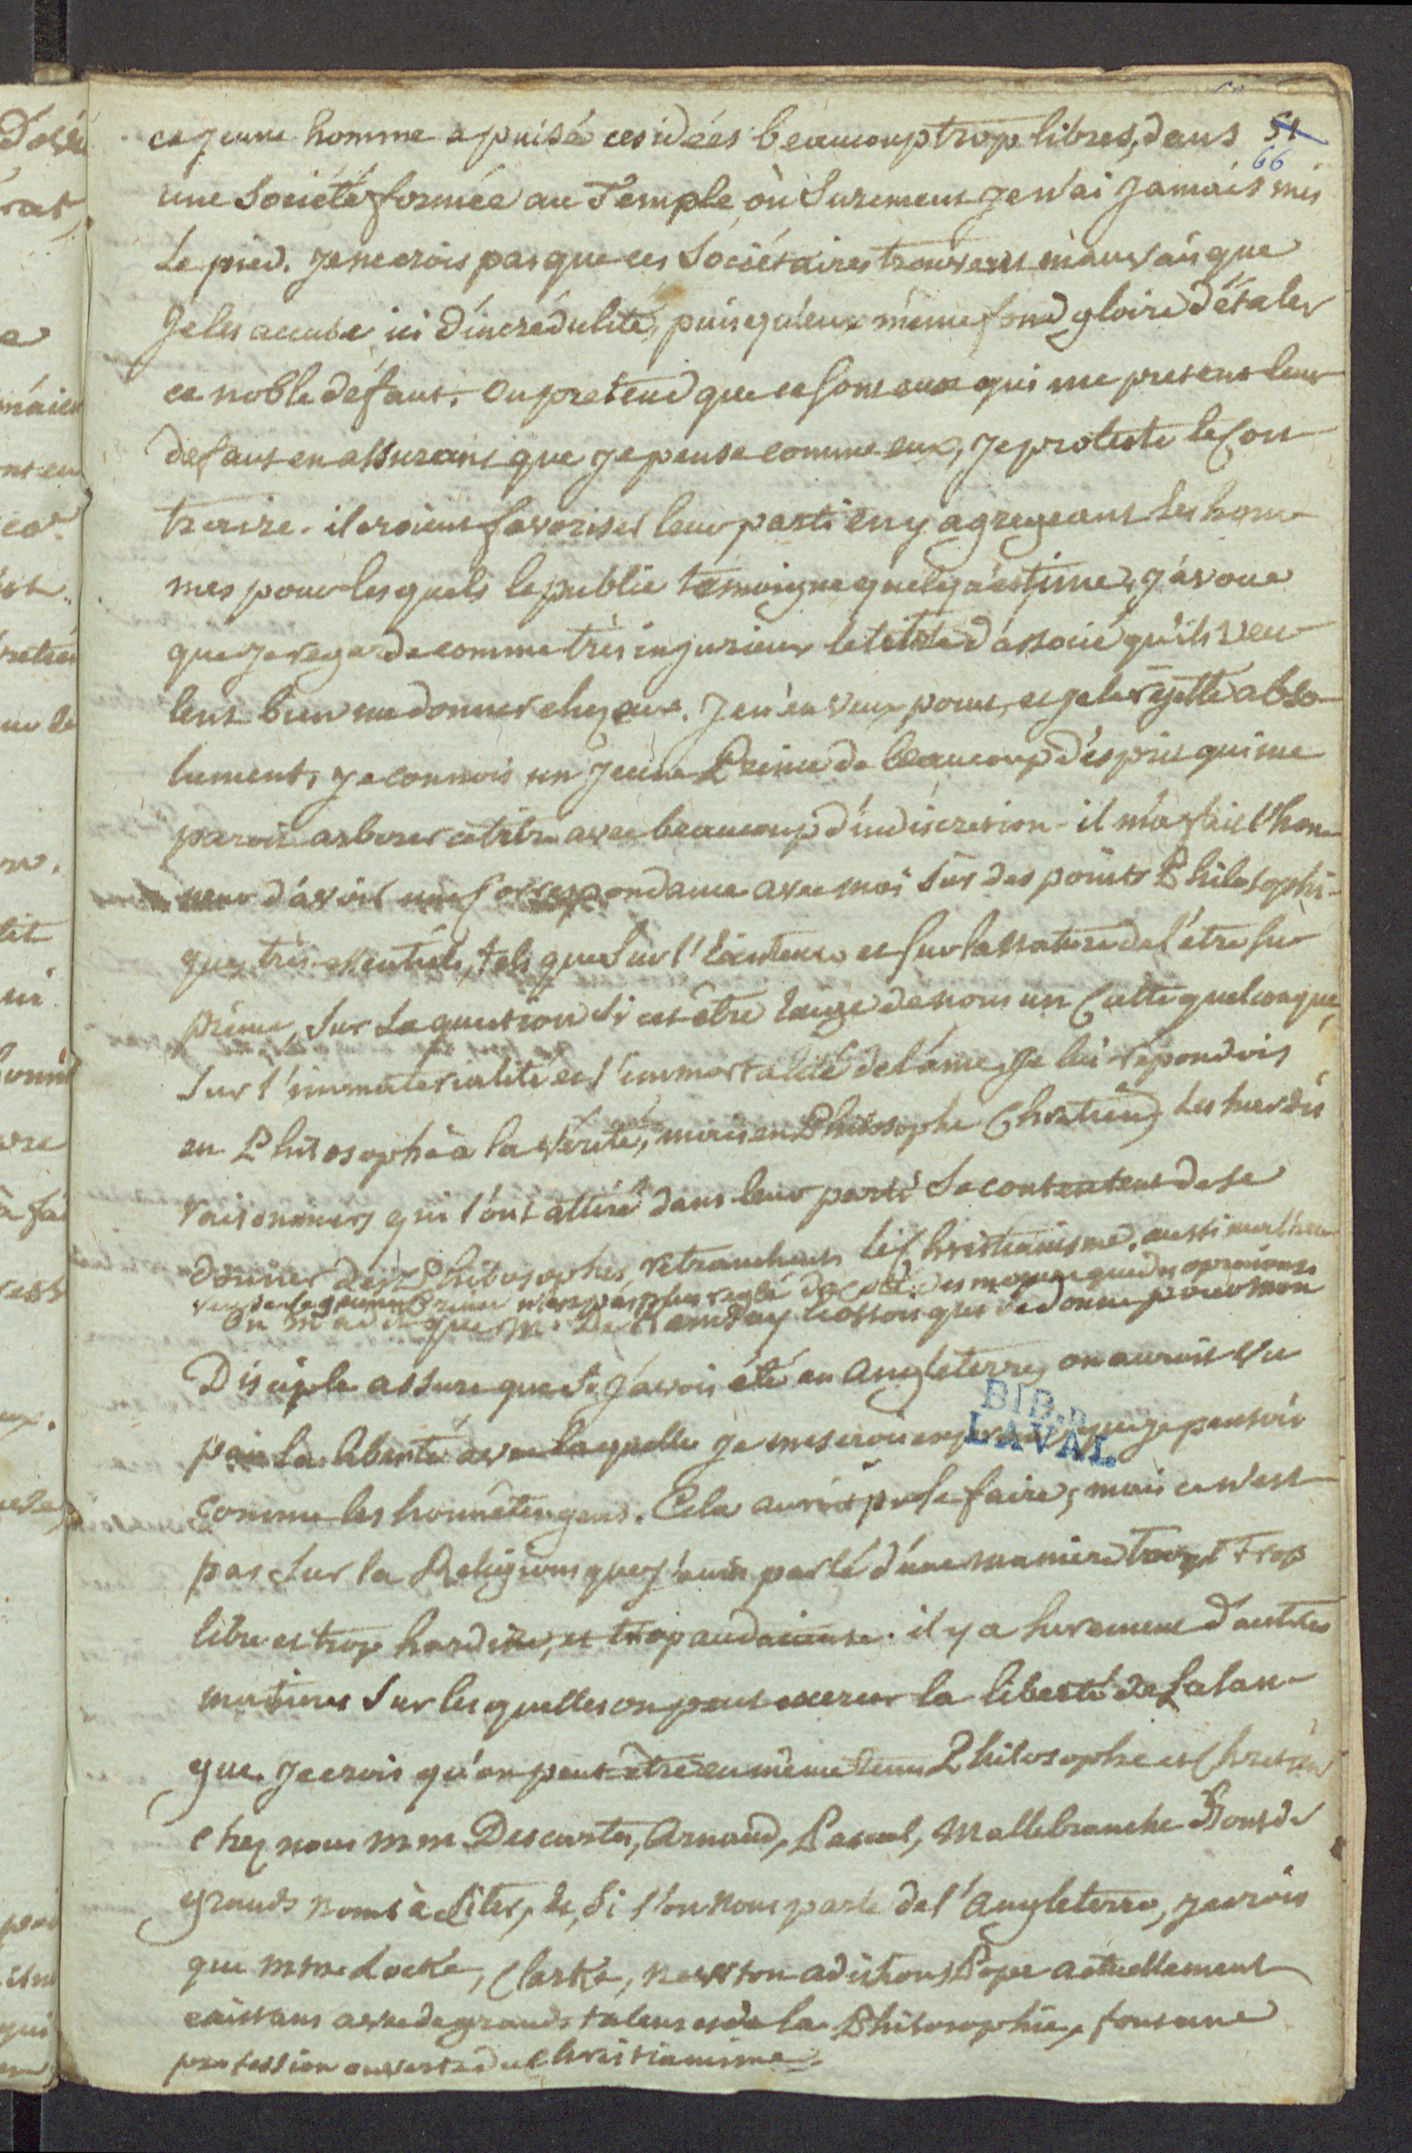 ce jeune homme a puisé ces idées beaucoup trop libres, dans 51
66
une Société formée au Temple, où Surement je n'ai jamais mis
Le pied. Je ne crois pas que ces Sociétaires trouvent mauvais que
Je les accuse ici d'incrédulité, puisqu'eux même font gloire d'étaler
ce noble défaut. On pretend que ce sont eux qui me pretent leur
defaut en assurant que je pense comme eux, je proteste le Con
traire. il croient favoriser leur parti en y agregeant les hom
mes pour lesquels le public temoigne quelqu'estime, j'avoue
que je regarde comme très injurieux le titre d'associé qu'ils veu
lent bien me donner chez eux. Je n'en veux point, et je le rejette abso
lument, je connois un jeune Prince de beaucoup d'esprit qui me
paroit arborer ce titre avec beaucoup d'indiscretion - il m'a fait l'hon
neur d'avoir une Correspondance avec moi Sur des points Philosophi-
ques très essentiels, tels que Sur l'Existence et Sur la Nature de l'être Su
prême, Sur La question Si cet être Exige de nous un Culte quelconque,
Sur l'immaterialité et l'immortalité de l'ame, Je lui répondois
en Philosophe à la Verité, mais en Philosophe Chretien, Les hardis
raisonneurs qui l'ont attiré dans leur parti Se contentent de se
donner des Philosophes, retranchent le Christianisme, aussi malheu
reusement le jeune Prince n'est pas plus reglé du coté des moeurs que des opinions.
On m'a dit que Mr. De Ramsay Ecossois qui se donne pour mon
Disciple assure que Si j'avois été en Angleterre, on auroit vu
par la liberté avec laquelle je me serois exprimé que je pensois
comme les honnêtes gens. Cela auroit pu se faire, mais ce n'est
pas Sur la Religion que j'aurois parlé d'une maniere trop
libre et trop hardie, et trop audacieuse. il y a Surement d'autres
matieres Sur les quelles on peut exercer la liberté de La lan-
gue. Je crois qu'on peut être en même tems Philosophe et Chretien
Chez nous Mm. Descartes, Arnaud, Pascal, Mallebranche Sont de
grands noms à Citer, et, Si l'on nous parle de l'Angleterre, je crois
que Mm. Locke, Clarke, Newton adisson Pope actuellement
existans avec de grands talens et de la Philosophie, font une
profession ouverte du Christianisme.
BIB.
LAVAL